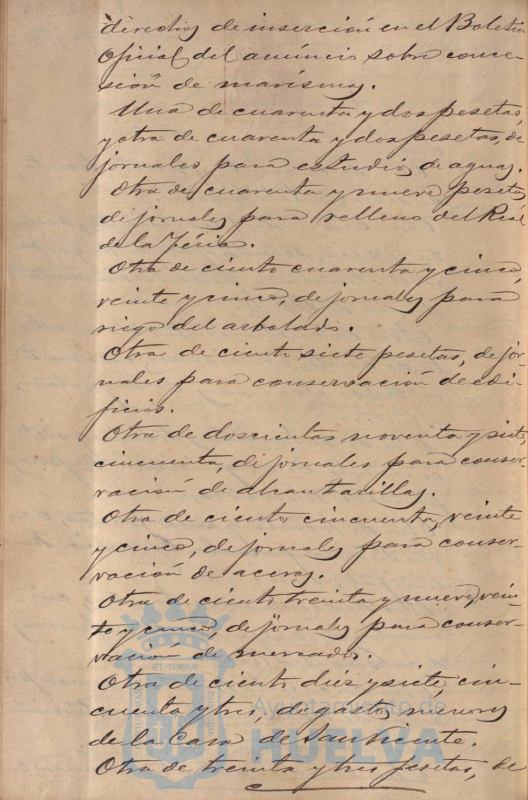 directivos de inserción en el Boletín
Oficial del anuncio sobre conce-
sión de marismas.
Una de cuarenta y dos pesetas,
y otra de cuarenta y dos pesetas, de
jornales para estudios de aguas.
Otra de cuarenta y nueve pesetas
de jornales para relleno del Real
de la Féria.
Otra de ciento cuarenta y cinco,
veinte y cinco, de jornales para
riego del arbolado.
Otra de ciento siete pesetas, de jor-
nales para conservación de edi-
ficios.
Otra de doscientas noventa y siete,
cincuenta, de jornales para conser-
vación de alcantarillas.
Otra de ciento cincuenta, veinte
y cinco, de jornales para conser-
vación de aceras.
Otra de ciento treinta y nueve, vein-
te y cinco, de jornales para conser-
vación de mercados.
Otra de ciento diez y siete, cin-
cuenta y tres, de gastos menores
de la Casa de San Vicente.
Otra de treinta y tres pesetas, de
ET TERRÆ
Ayuntamiento de
HUELVA